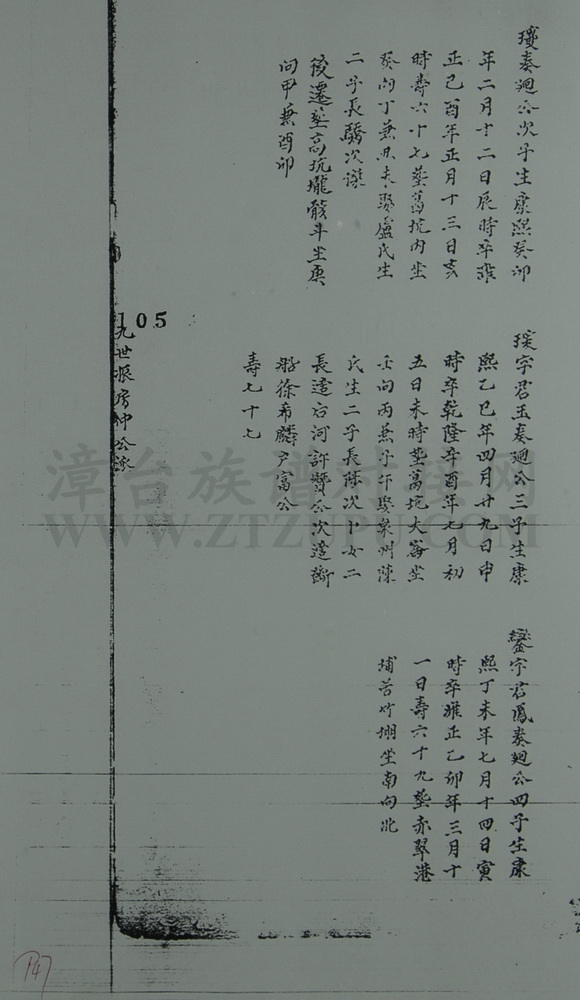 奏廻公次子生康熙癸卯
年二月十二日辰時卒雍
正己酉年正月十三日亥
時壽六十七葬萬坑內坐
癸向丁兼丑未娶盧氏生
二子長驕次
後遷葬高坑壠骸斗坐庚
向甲兼酉卯
字君玉奏廻公三子生康
熙乙巳年四月廿九日申
時卒乾隆辛酉年七月初
五日未時葬萬坑大藔坐
壬向丙兼子午娶泉州陳
氏生二子長 次卜女二
長適石河許贊公次適
船徐希麟户富公
壽七十七
鑾字君鳳奏廻公四子生康
熙丁未年七月十四日寅
時卒雍正乙卯年三月十
一日壽六十九葬赤翠港
埔苦竹堋坐南向北
105
九世 房仲公派
漳台族谱对接网
WWW.ZTZUPU.COM
147